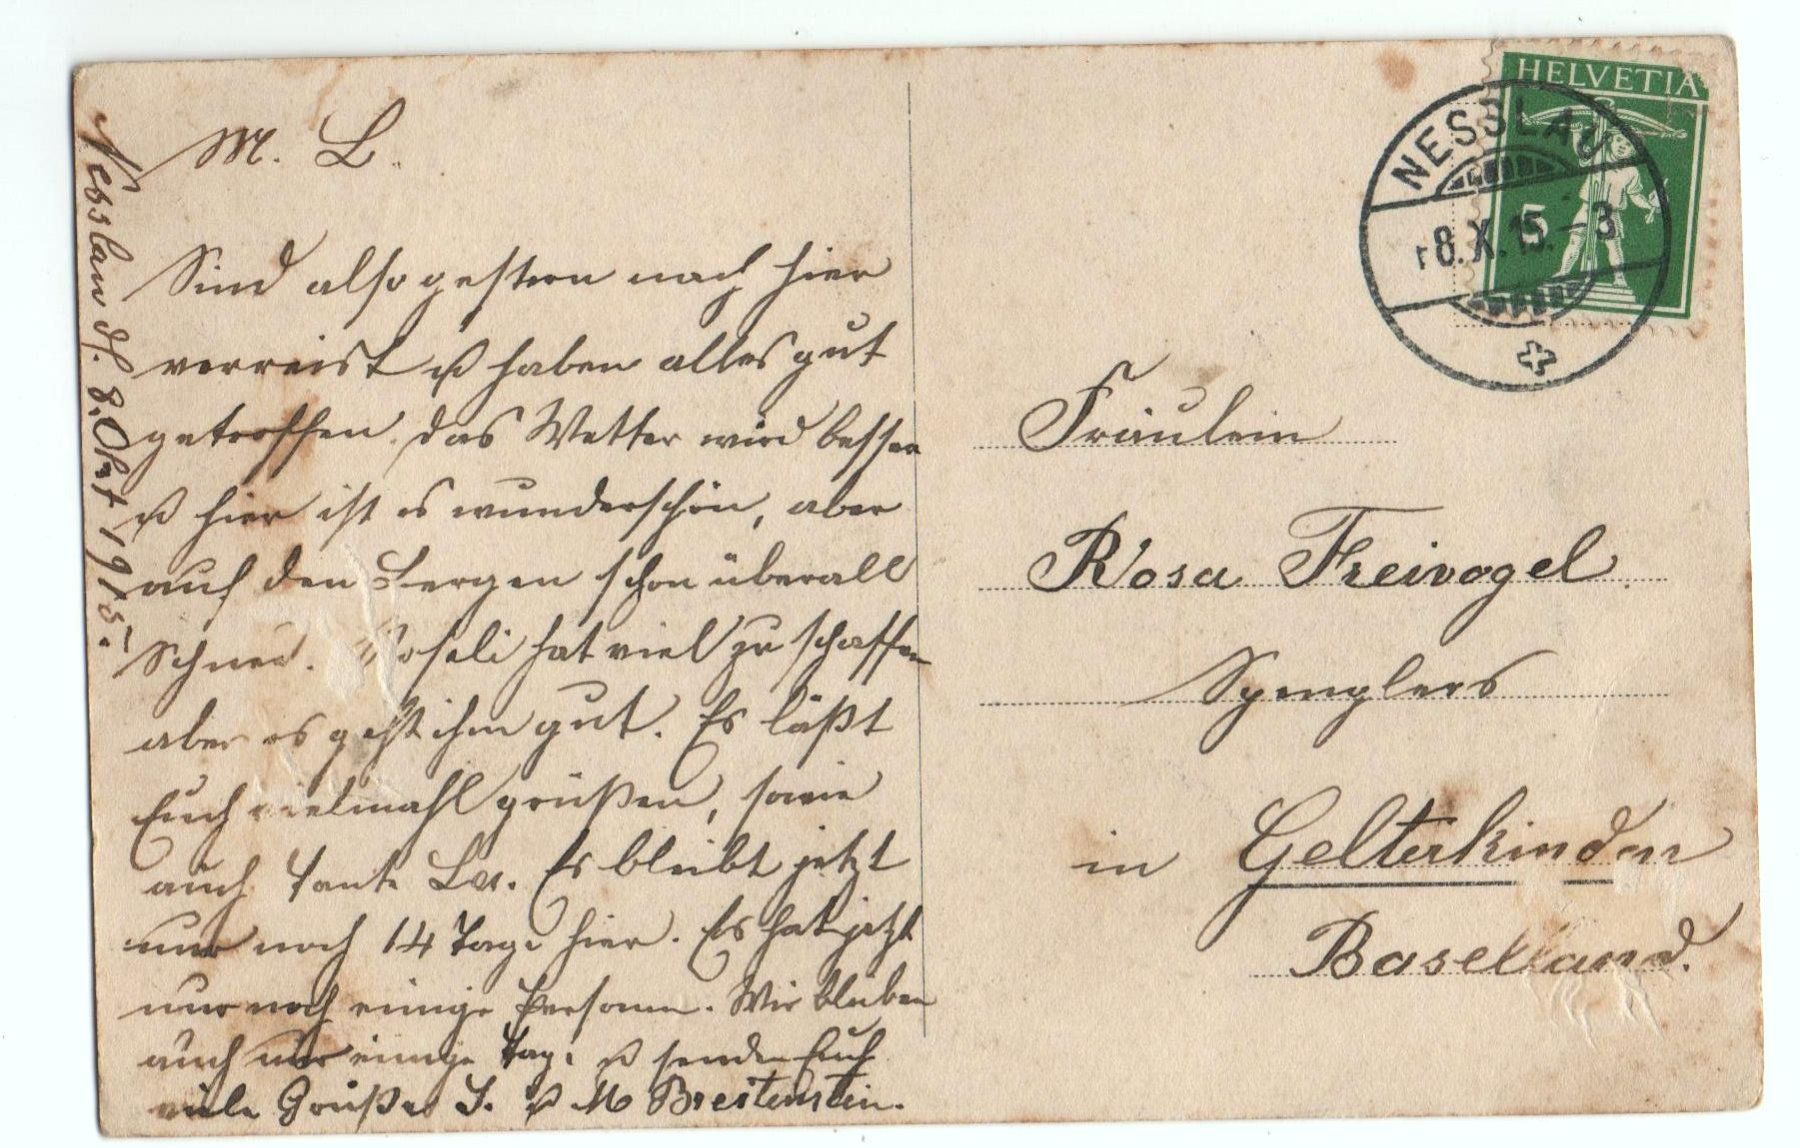 Nesslau d. 8. Okt 1915.
M. L.
Sind also gestern nach hier
verreist u haben alles gut
getroffen. das Wetter wird besser
u hier ist es wunderschön, aber
auf den Bergen schon überall
Schnee. Roseli hat viel zu schaffen
aber es geht ihm gut. Es läßt
Euch vielmahl grüßen, sowie
auch Tante Lea. Es bleibt jetzt
nur noch 14 Tage hier. Es hat jetzt
nur noch einige Personen. Wir bleiben
auch nur einige Tage u senden Euch
viele Grüße J. u M Breitenstein.
HELVETIA
5
NESSLAU
8.X.15.–3
Fräulein
Rosa Freivogel
Spenglers
in Gelterkinden
Baselland.